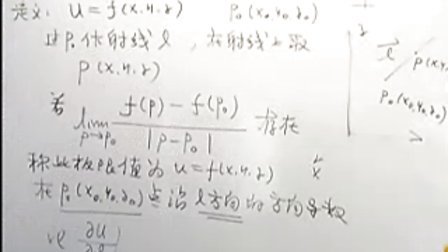 定义: u = f(x.y.z) P₀(x₀,y₀,z₀)
过P₀作射线 l, 在射线上取
P(x.y.z)
若 lim P→P₀ f(P) - f(P₀) / |P-P₀| 存在
称此极限值为 u = f(x,y,z)
在P₀(x₀,y₀,z₀)点沿l方向的方向导数
记 ∂u/∂l
z
l
P(x,y,
P₀(x₀,y₀,z₀)
x